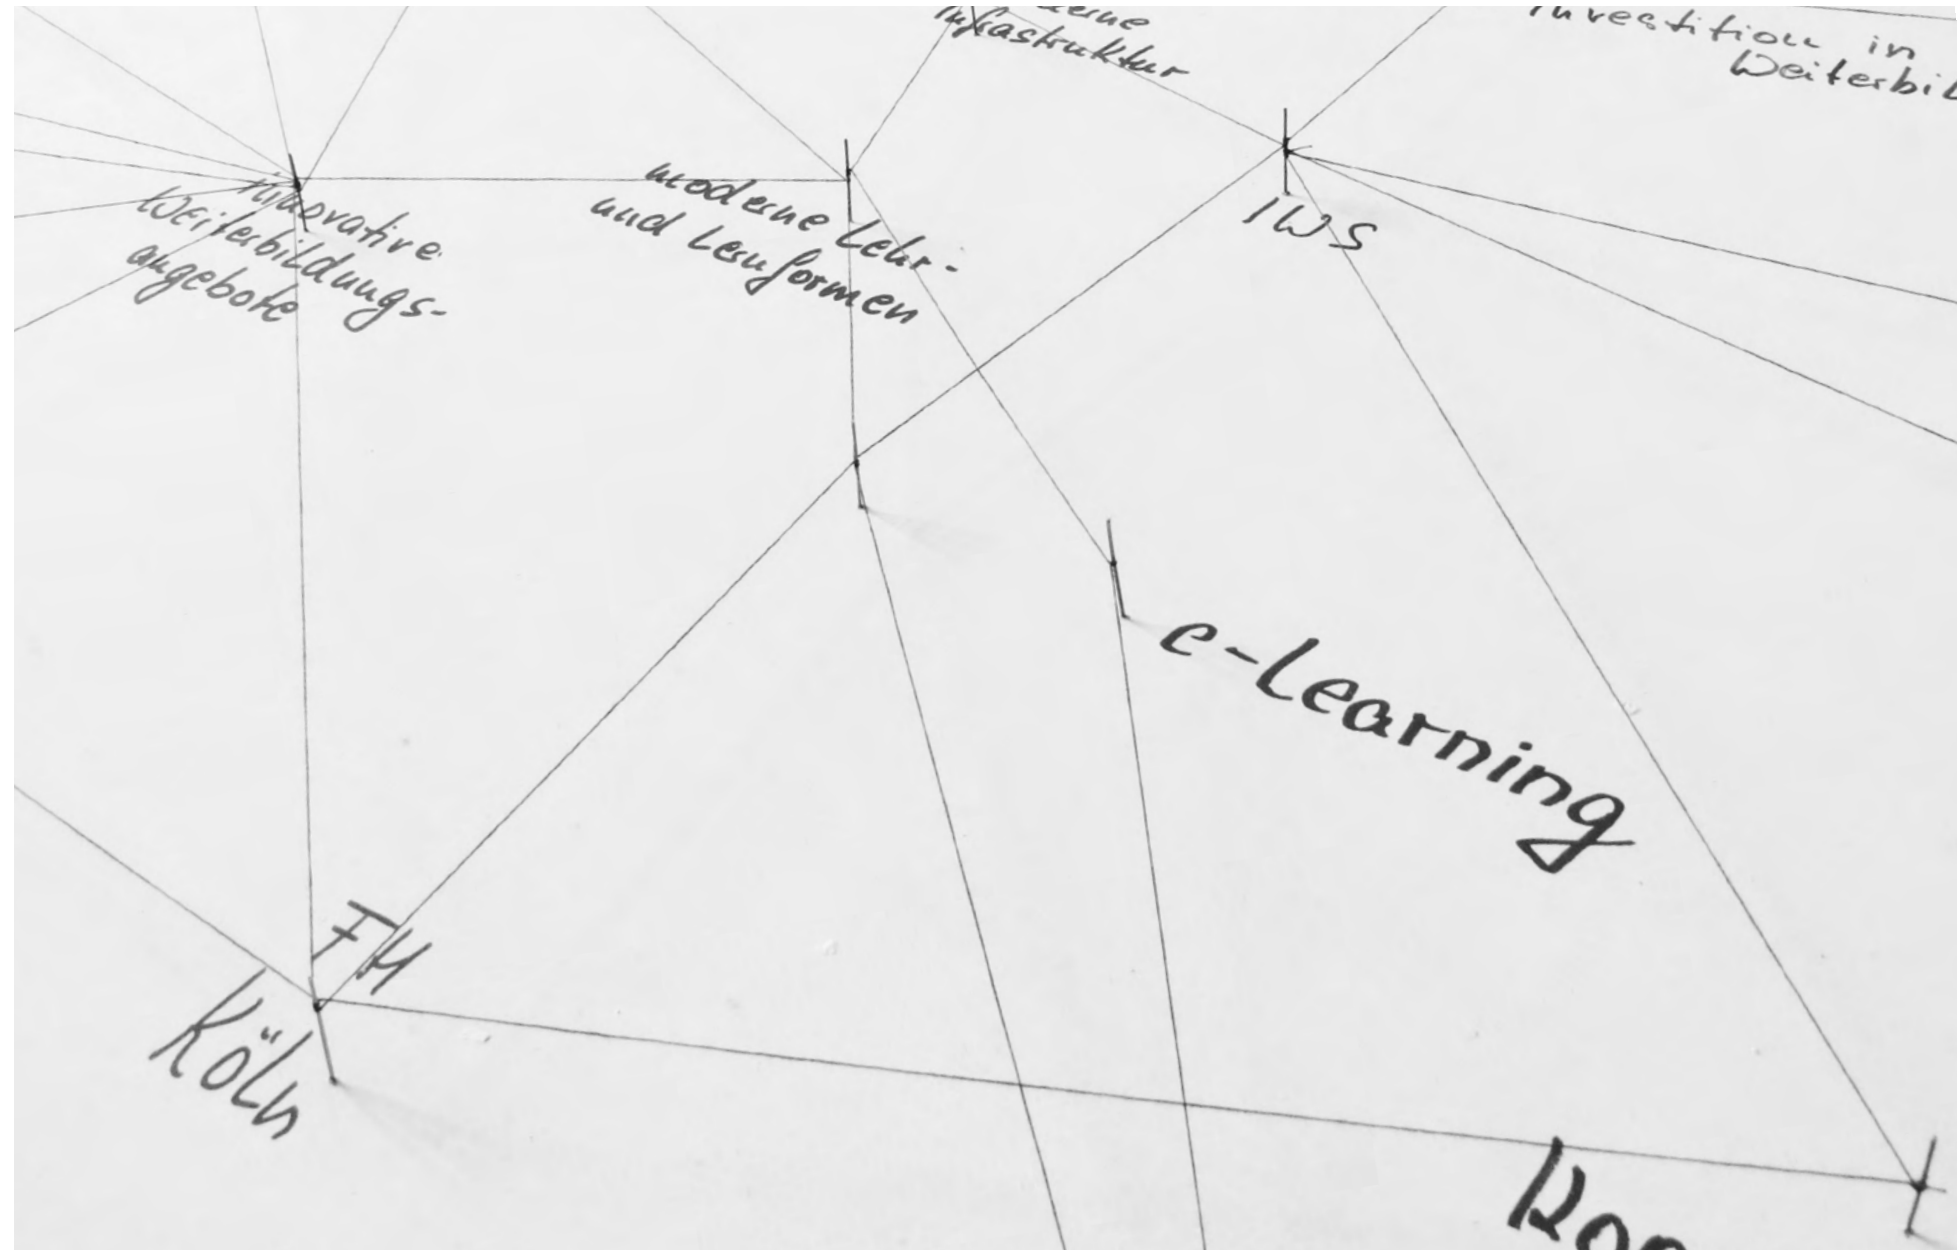 Infrastruktur
Investition in
innovative
Weiterbildungs-
angebote
moderne Lehr-
und Lernformen
IWS
e-Learning
FH
Köln